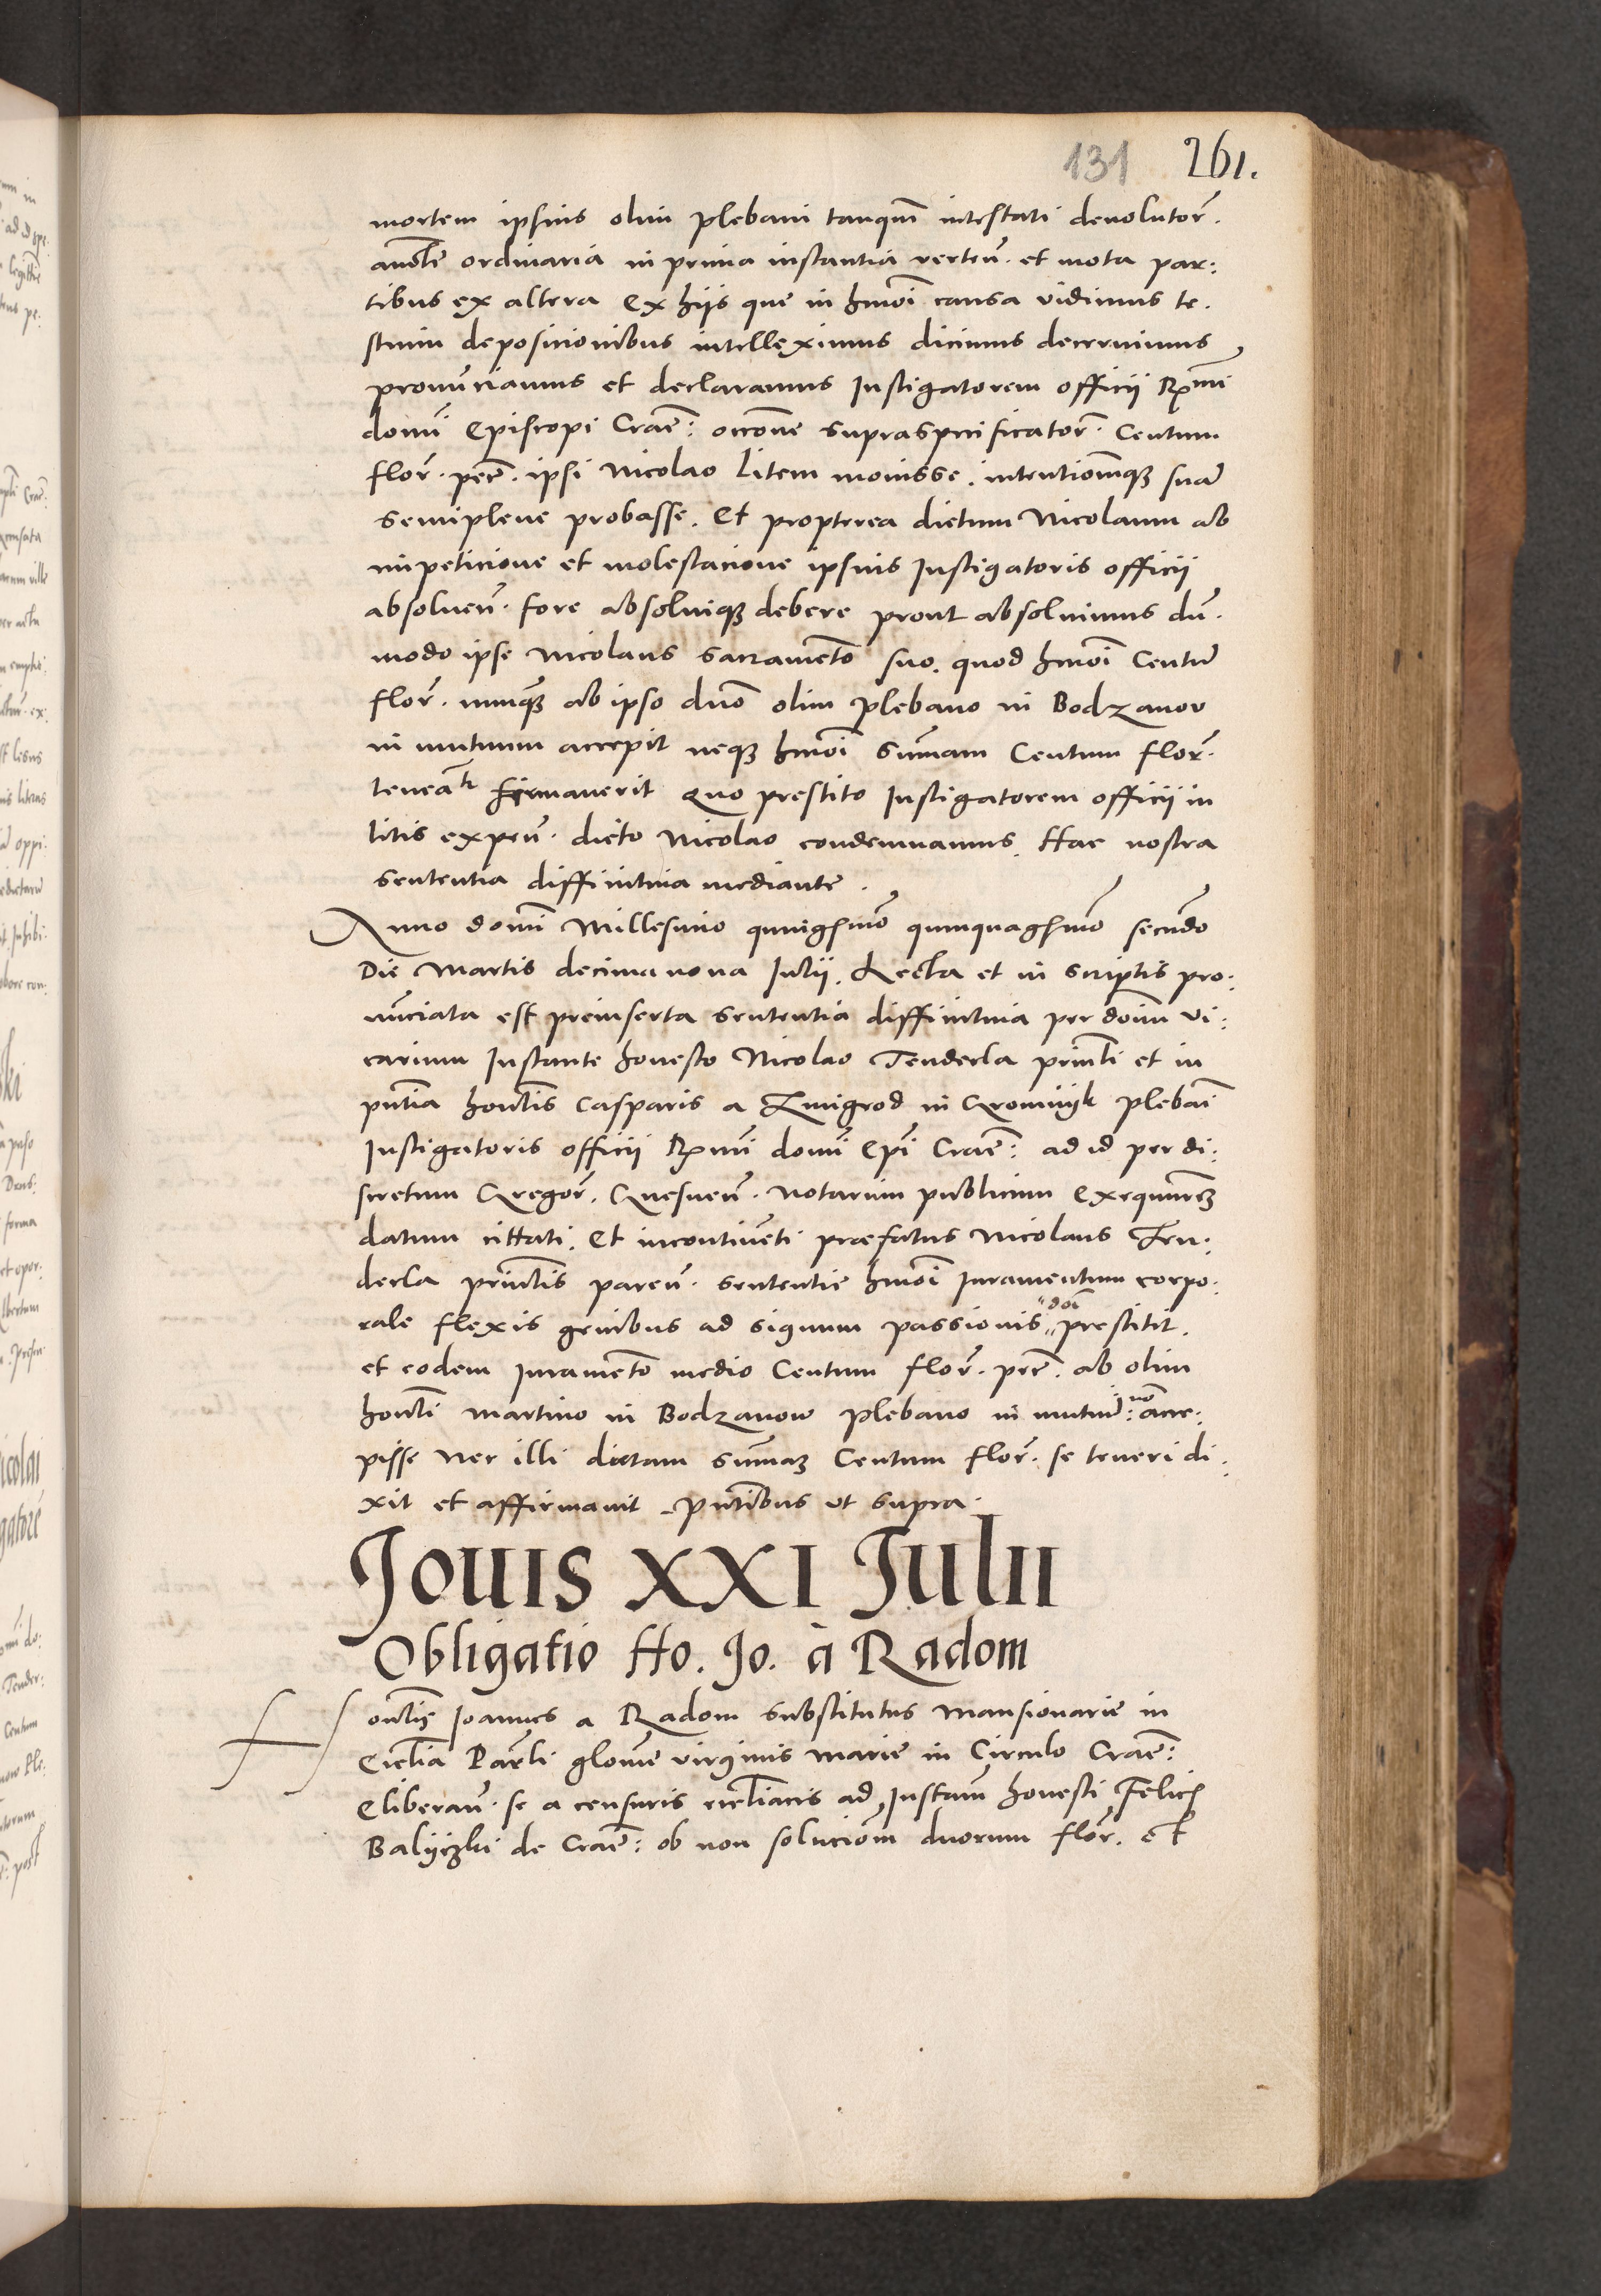 131 261.
mortem ipsius olim plebani tanqua͂ intestati deuolutor͂.
auctte ordinaria in prima instantia verten͂. et mota par:
tibus ex altera Ex hiis que in hmoi͂ causa vidimus te.
stium deposicionibus intelleximus dicimus decernimus
pronu͂ciamus et declaramus Instigatorem officii R͂mi
domi͂ Episcopi Crac͂: occo͂ne supraspecificator͂. Centum
flor͂. pec͂. ipsi Nicolao Litem mouisse. intentionemq₃ sua͂
semiplene probasse. Et propterea dictum Nicolaum ab
impeticione et molestacione ipsius Instigatoris officii
absoluen͂. fore absoluiq₃ debere prout absoluimus du͂.
modo ipse Nicolaus sacrame͂to suo. quod hmoi͂ Centu͂
flor͂. nunq₃ ab ipso dno͂ olim plebano in Bodzanow
in mutuum accepit neq₃ hmoi͂ su͂mam Centum flor͂.
tenea͂tr firmauerit Quo prestito Instigatorem officii in
litis expen͂. dicto Nicolao condemnamus. Hac nostra
sententia diffinitiua mediante.
Anno domi͂ Millesimo quingesimo͂ quinquagesimo͂ secundo͂
Die Martis decima nona Iulii. Lecta et in scriptis pro:
nu͂ciata est preinserta sententia diffinitiua per doim͂ vi:
carium Instante honesto Nicolao Tenderla prin͂cli et in
pn͂tia hon͂tis Casparis a Zmigrod in Gromnijk plebai͂
Instigatoris officii R͂mi domi͂ Ep͂i Crac͂: ad id per di:
scretum Gregor͂. Gnesnen͂. notarium publicum Exequum͂₃
datum cittati. Et incontine͂ti praefatus Nicolaus Ten:
derla prin͂clis paren͂. sententie hmoi͂ Iuramentum corpo.
rale flexis genibus ad signum passionis "doi͂" prestitit.
et eodem Iurame͂to medio Centum flor͂. pec͂. ab olim
hon͂li Martino in Bodzanow plebano in mutuu͂: no͂ acce:
pisse Nec illi dictam su͂ma₃ Centum flor͂. se teneri di:
xit et affirmauit Pn͂tibus vt supra.
Jouis XXI Julii
Obligatio Ho. Jo. à Radom
Hon͂lis Ioannes a Radom substitutus Mansionarie in
Eccl͂ia Par͂li glo͂me virginis marie in Circulo Crac͂:
Eliberan͂. se a censuris eccl͂iacis ad Instam͂ honesti Felicis
Balijczki de Crac͂: ob non solucio͂m duorum flor͂. et